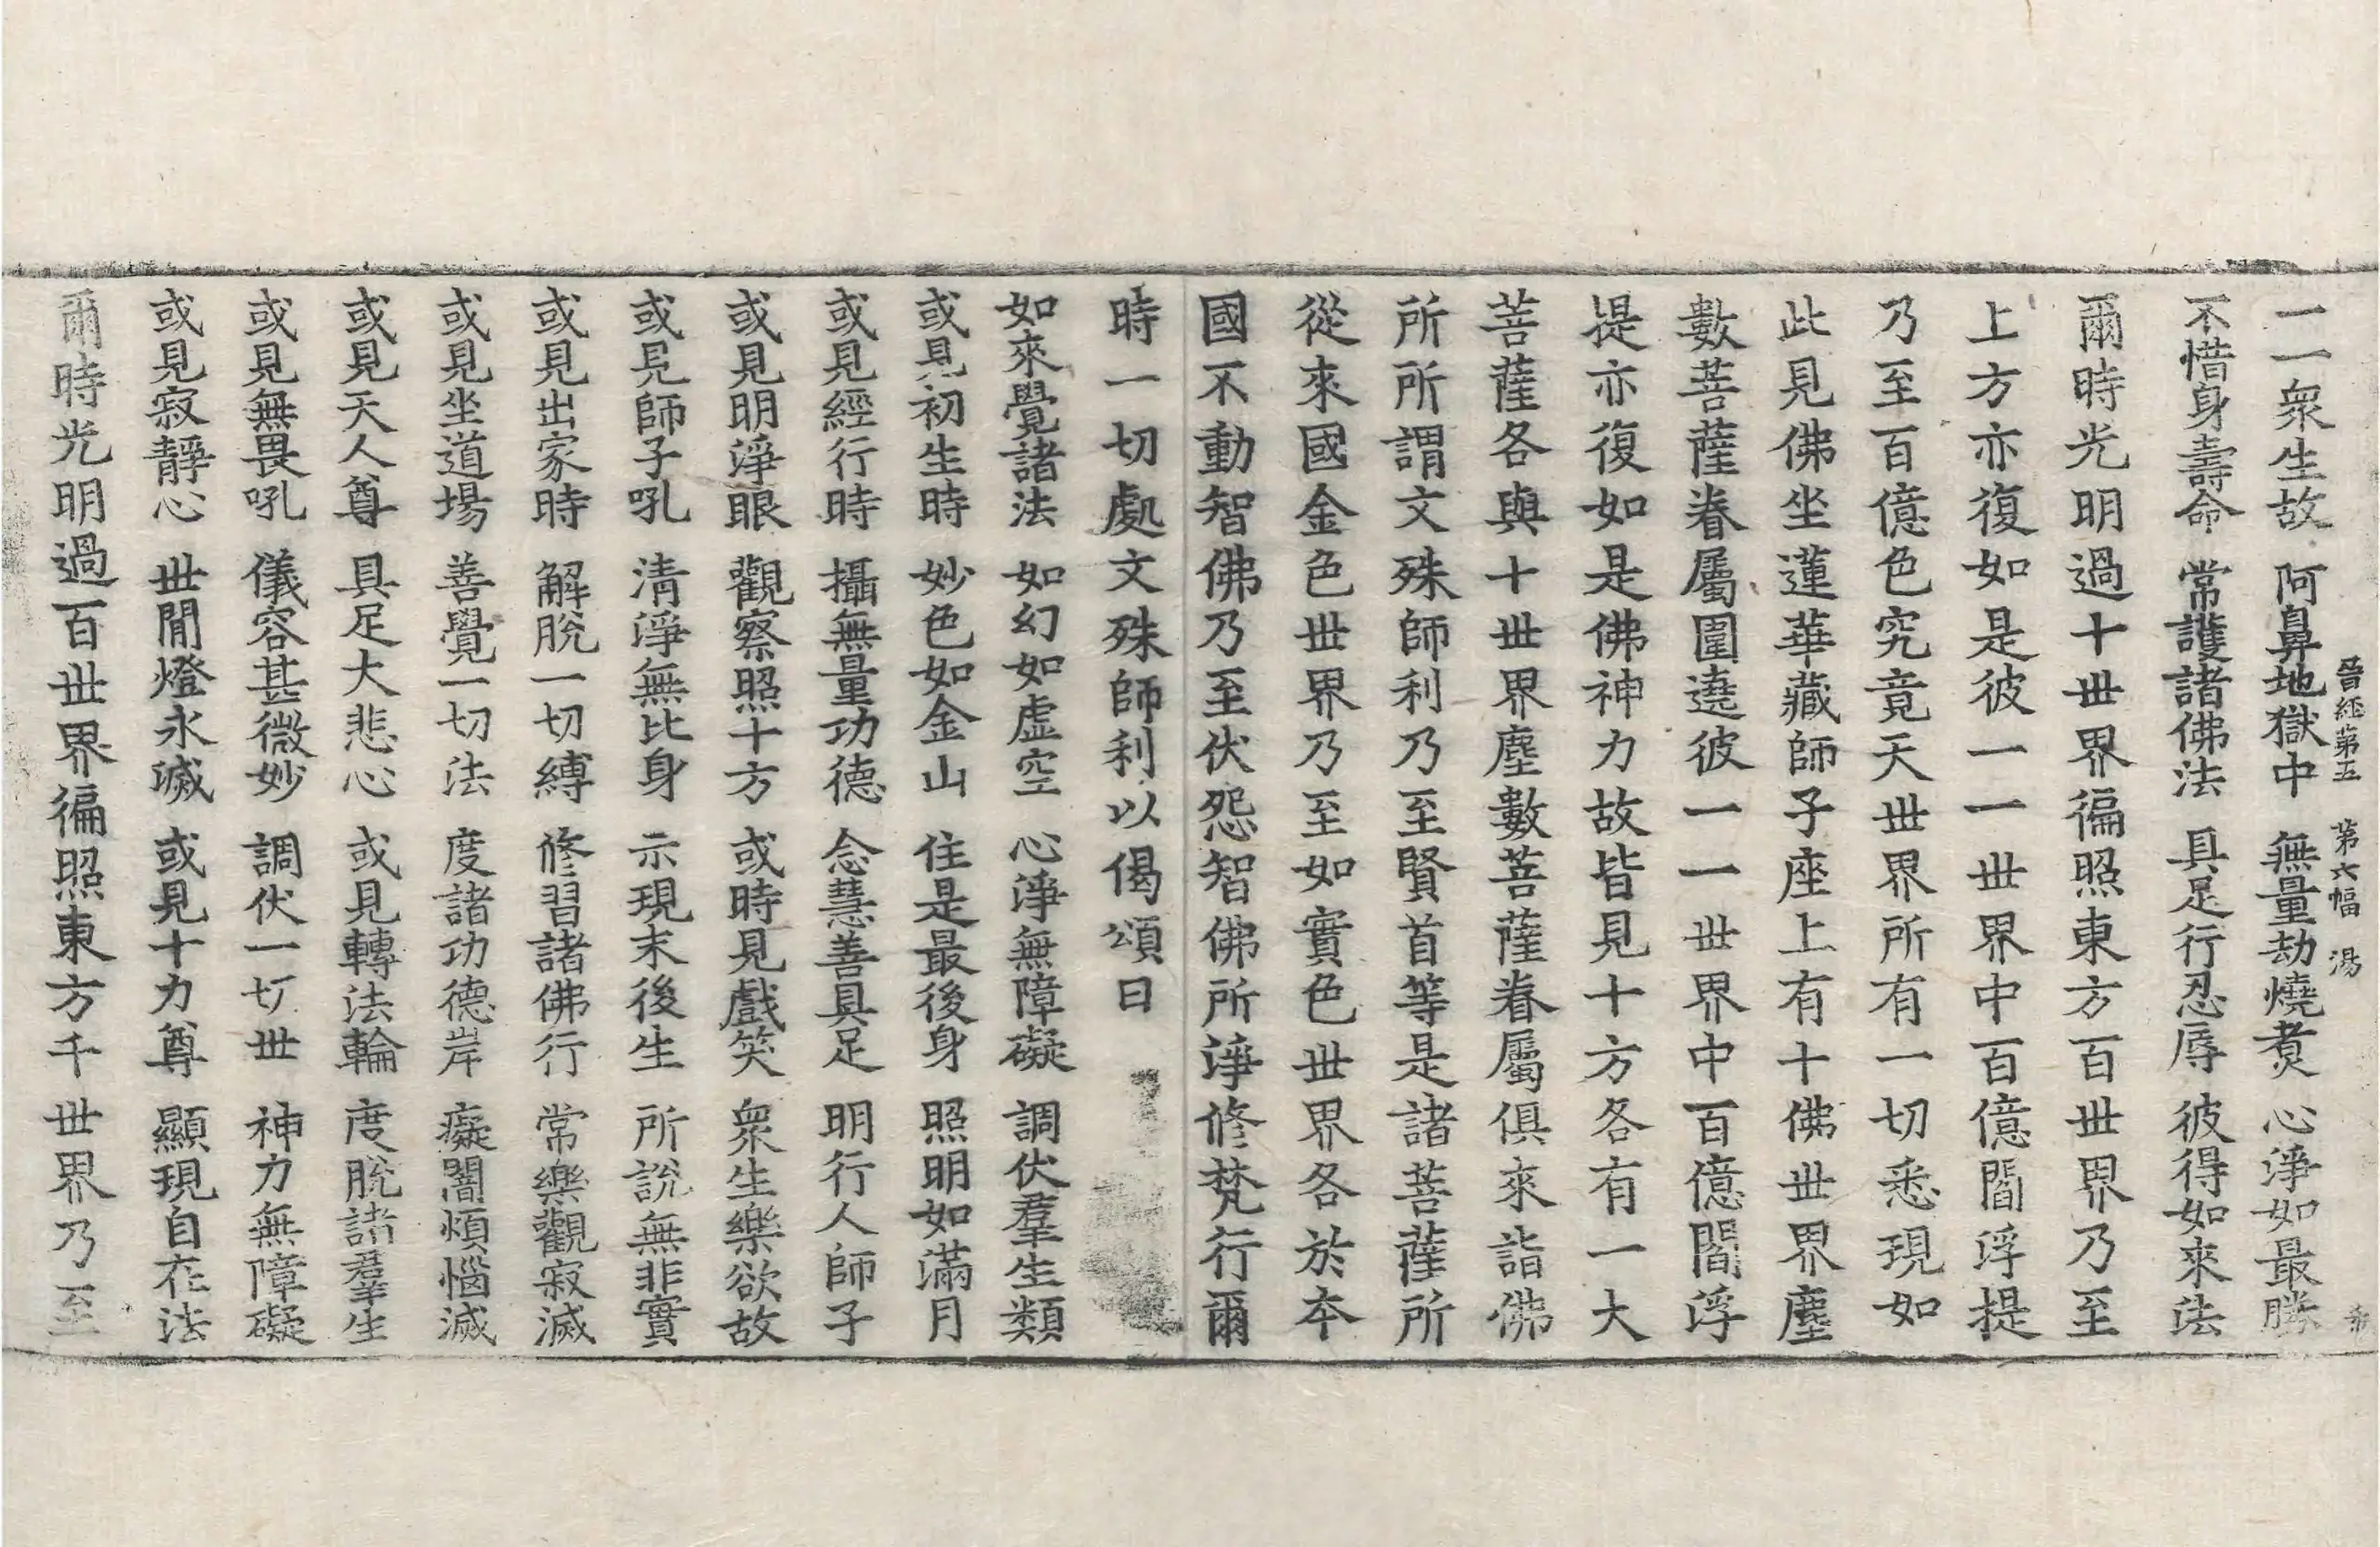 一一衆生故　阿鼻地獄中　無量劫燒煑　心淨如最勝
晉經第五　第六幅　湯
不惜身壽命　常護諸佛法　具足行忍辱　彼得如來法
爾時光明過十世界徧照東方百世界乃至
上方亦復如是彼一一世界中百億閻浮提
乃至百億色究竟天世界所有一切悉現如
此見佛坐蓮華藏師子座上有十佛世界塵
數菩薩眷屬圍遶彼一一世界中百億閻浮
提亦復如是佛神力故皆見十方各有一大
菩薩各與十世界塵數菩薩眷屬俱來詣佛
所所謂文殊師利乃至賢首等是諸菩薩所
從來國金色世界乃至如實色世界各於本
國不動智佛乃至伏怨智佛所淨修梵行爾
時一切處文殊師利以偈頌曰
如來覺諸法　如幻如虛空　心淨無障礙　調伏羣生類
或見初生時　妙色如金山　住是最後身　照明如滿月
或見經行時　攝無量功德　念慧善具足　明行人師子
或見明淨眼　觀察照十方　或時見戲笑　衆生樂欲故
或見師子吼　清淨無比身　示現末後生　所說無非實
或見出家時　解脫一切縛　修習諸佛行　常樂觀寂滅
或見坐道場　善覺一切法　度諸功德岸　癡闇煩惱滅
或見天人尊　具足大悲心　或見轉法輪　度脫諸羣生
或見無畏吼　儀容甚微妙　調伏一切世　神力無障礙
或見寂靜心　世閒燈永滅　或見十力尊　顯現自在法
爾時光明過百世界徧照東方千世界乃至